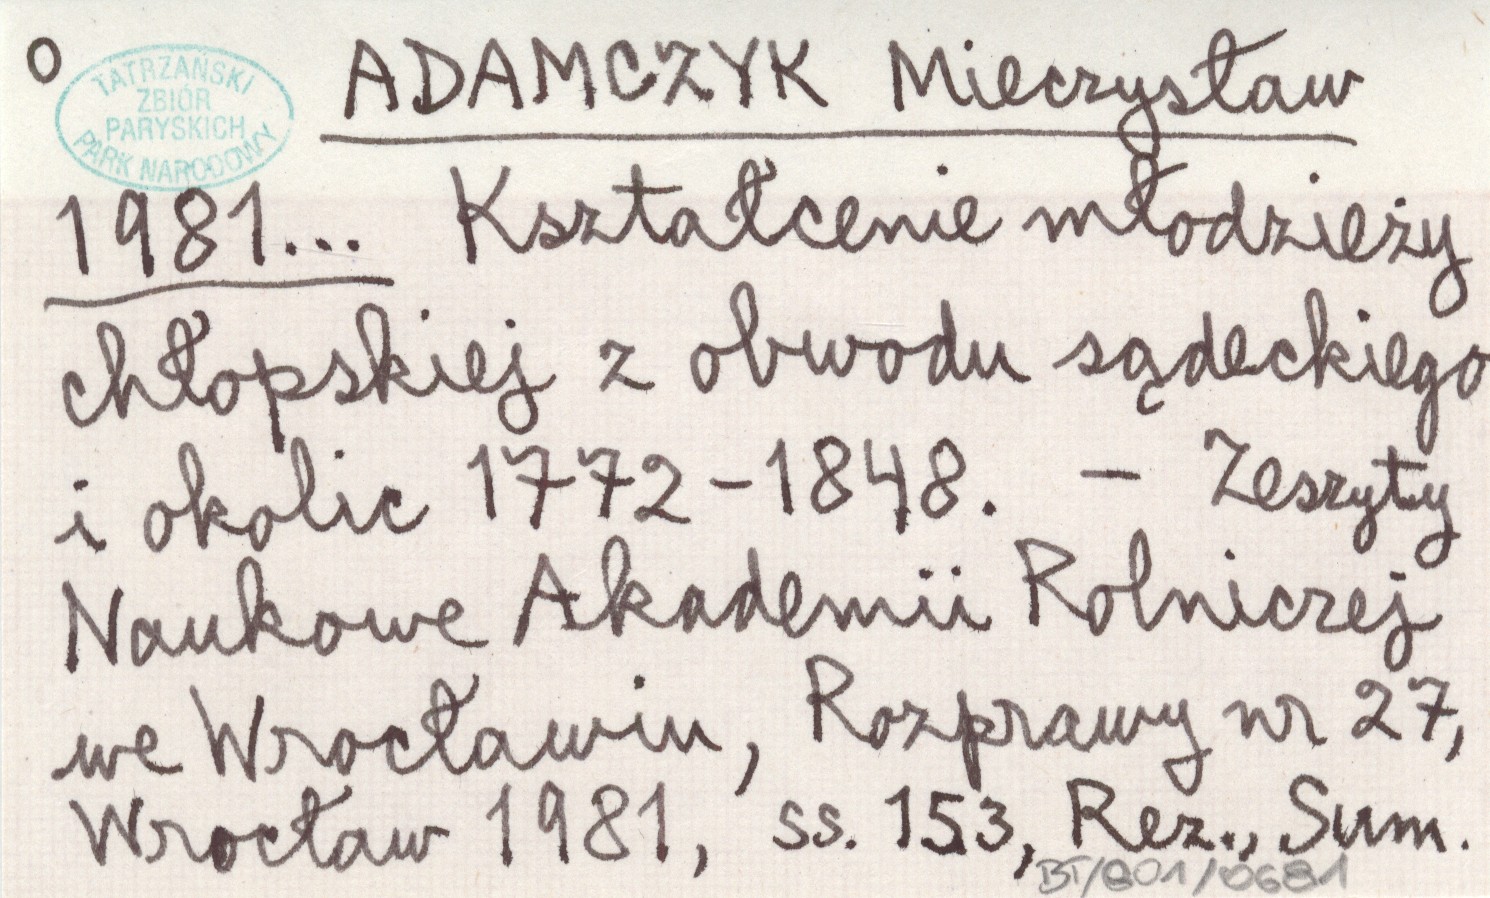 o ADAMCZYK Mieczysław
TATRZAŃSKI
ZBIÓR
PARYSKICH
PARK NARODOWY
1981... Kształcenie młodzieży
chłopskiej z obwodu sądeckiego
i okolic 1772-1848. - Zeszyty
Naukowe Akademii Rolniczej
we Wrocławiu, Rozprawy nr 27,
Wrocław 1981, ss. 153, Rez., Sum.
BT/801/0681